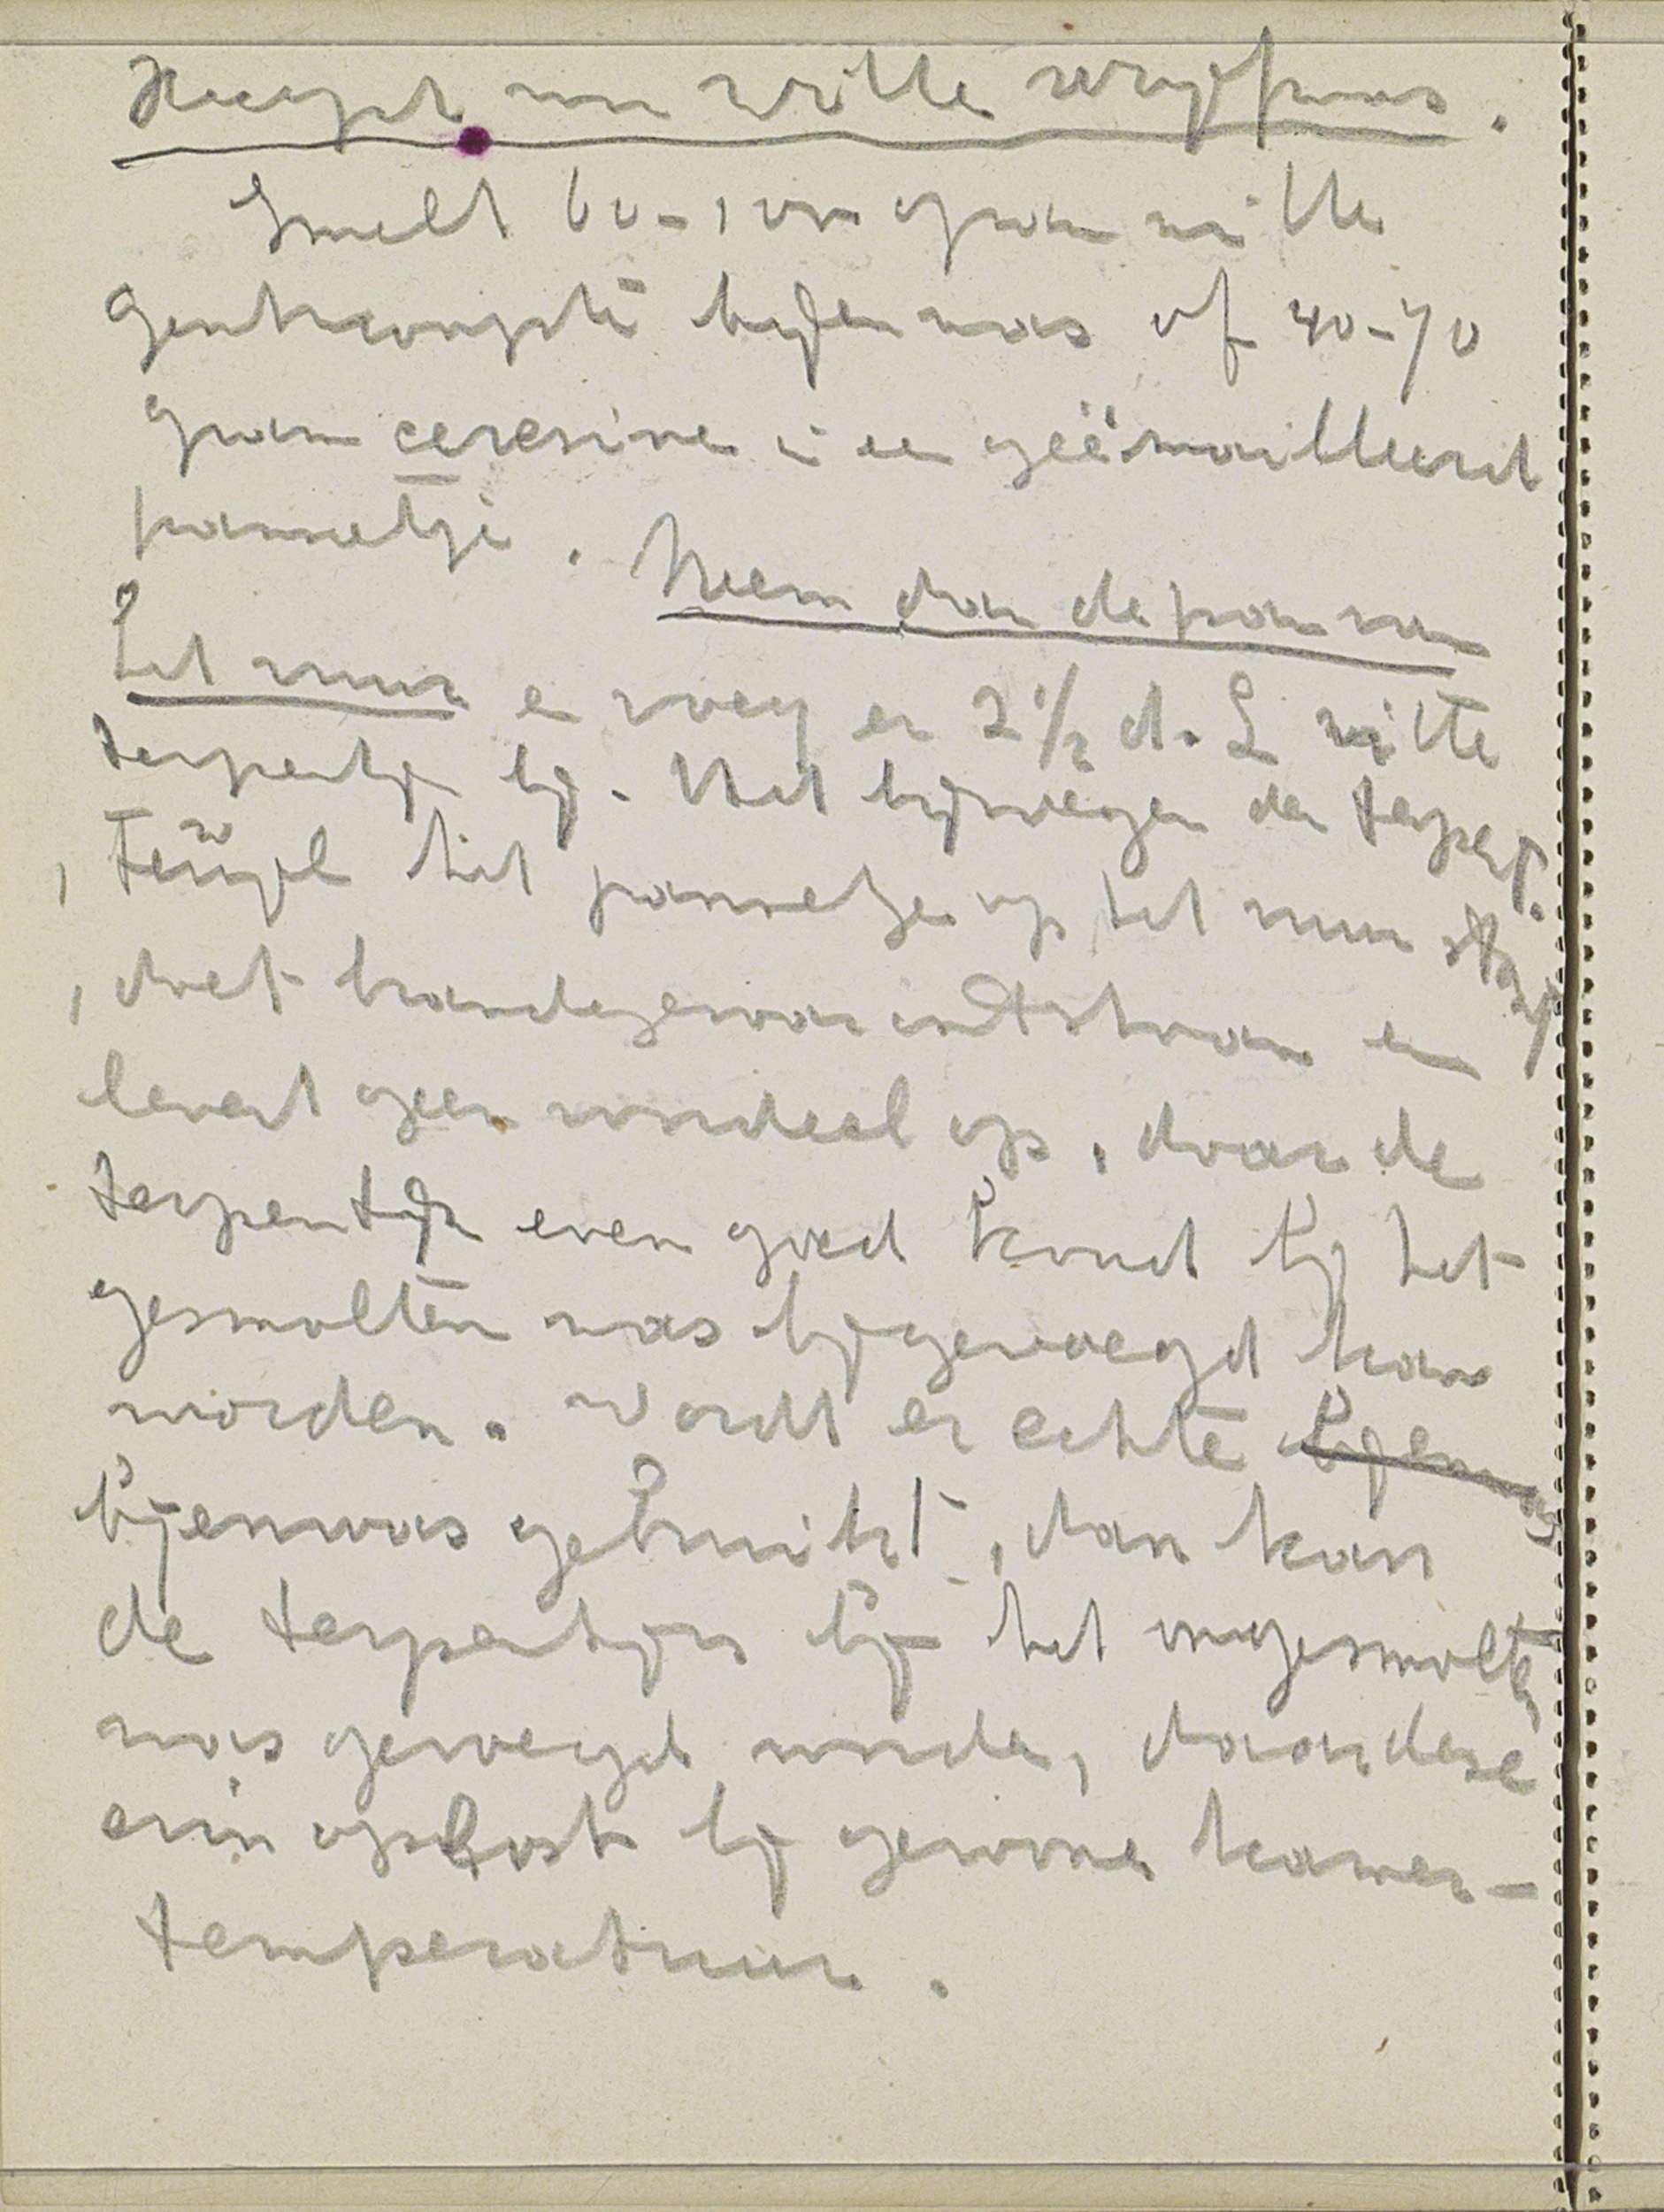 Recept van witte wrijfwas.
Smelt 60-100 gram witte
gentrconyste bijenwas of 40-70
gram ceresine in een geëmailleerd
pannetje. Neem dan de pan van
het vuur en voeg er 2 1/2 d.L witte
terpentijn bij. Het bijvoegen der terpent.
, terwijl het pannetje op het vuur staat
, doet brandgevaar ontstaan en
levert geen voordeel op, daar de
terpentijn even goed koud bij het
gesmolten was bijgevoegd kan
worden. Wordt er echte bijenwas
bijenwas gebruikt, dan kan
de terpentijn bij het ongesmolten
was gevoegd worden, daar deze
erin oplost bij gewone kamer-
temperatuur.